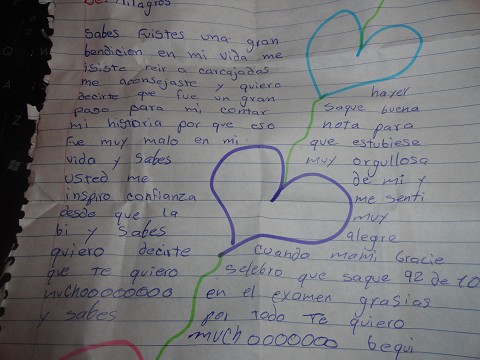 De: Milagros
Sabes Fuistes una gran
bendicion en mi vida me
isiste reir a carcajadas
me aconsejaste y quiero
decirte que fue un gran
paso para mi contar
mi historia por que eso
Fue muy malo en mi
vida y sabes
Usted me
inspiro confianza
desde que la
bi y Sabes
quiero decirte
que te quiero
muchoooooooo
y sabes
hayer
saque buena
nota para
que estubiese
muy orgullosa
de mi y
me senti
muy
alegre
cuando mami Gracie
selebro que saque 92 de 10
en el examen grasias
por todo te quiero
muchooooooo bequi